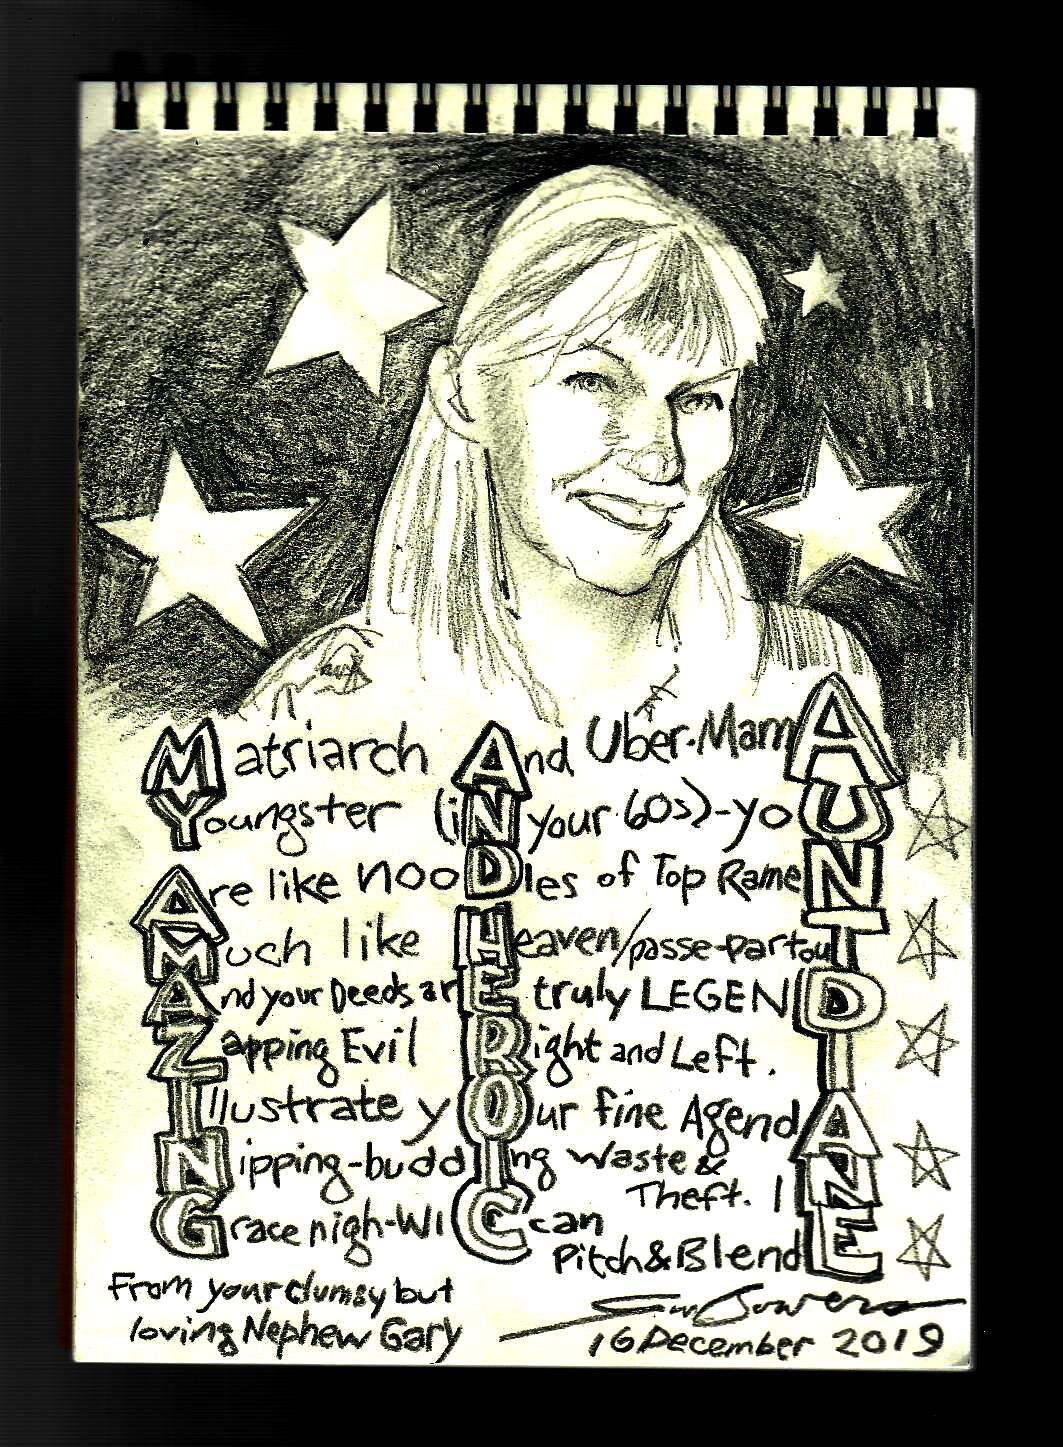 Matriarch And Uber-MamA
Youngster (iN your 60s)-yoU
Are like nooDles of Top RameN
Much like Heaven/passe-partouT
And your Deeds arE truly LEGEND
Zapping Evil Right and Left. I
Illustrate yOur fine AgendA
Nipping-buddIng Waste &
Theft. IN
Grace nigh-WICcan
Pitch&BlendE
From your clumsy but
loving Nephew Gary
Gary Bowers
16 December 2019